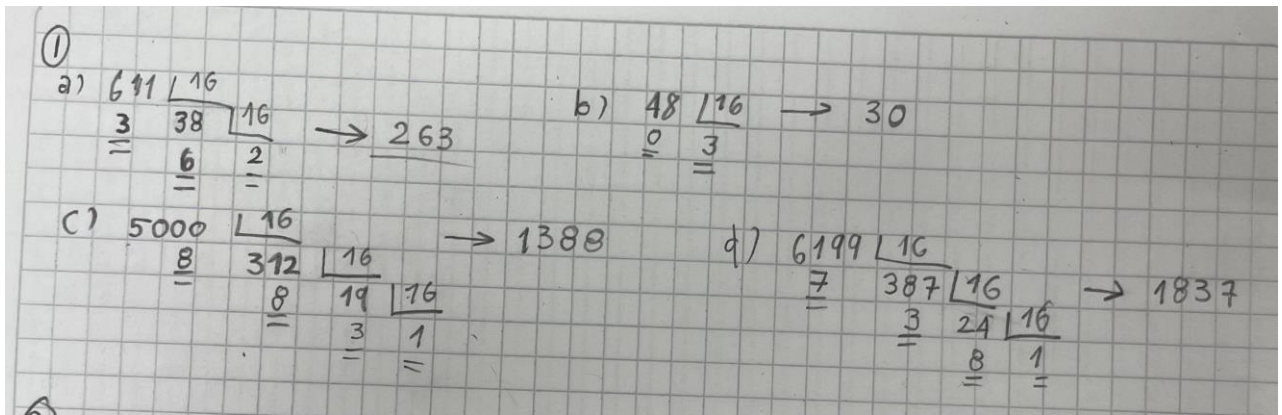 ①
a) 611 16
3 38 16 → 263
6 2
b) 48 16 → 30
0 3
c) 5000 16 → 1388
8 312 16
8 19 16
3 1
d) 6199 16
7 387 16 → 1837
3 24 16
8 1